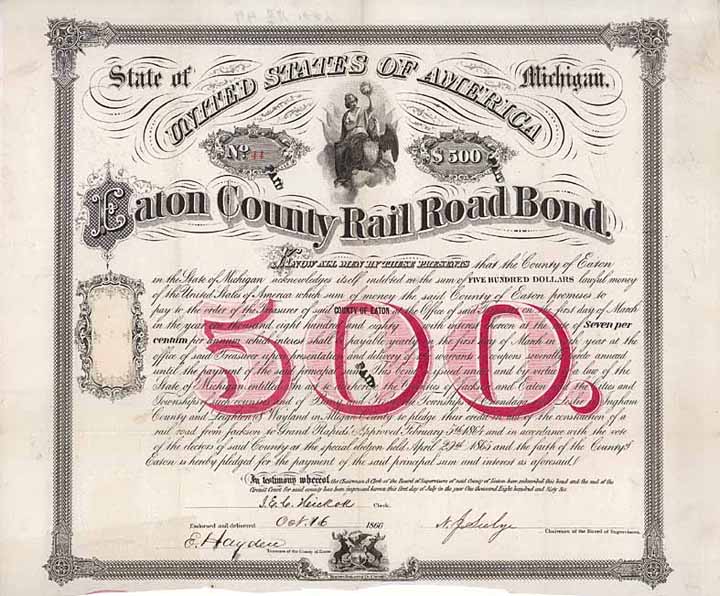 State of
UNITED STATES OF AMERICA
Michigan.
No. 44
$500
PAID
Eaton County Rail Road Bond.
KNOW ALL MEN BY THESE PRESENTS that the County of Eaton
in the State of Michigan acknowledges itself indebted in the sum of FIVE HUNDRED DOLLARS lawful money
of the United States of America which sum of money the said County of Eaton promises to
pay to the order of the Treasurer of said COUNTY OF EATON Office of said on the first day of March
in the year one thousand eight hundred and eighty with interest thereon at the Seven per
centum per annum which interest shall be payable yearly on the first day of March in each year at the
office of said Treasurer upon presentation and delivery of the warrants or coupons severally hereto annexed
until the payment of the said principal sum. This bond is issued under and by virtue of a law of the
State of Michigan entitled An act to authorize the Counties of Jackson and Eaton the cities and
Townships of such counties and of Township Onondaga Leslie Ingham
County and Leighton & Wayland in Allegan County to pledge their credit in aid of the construction of a
rail road from Jackson to Grand Rapids Approved February 5th 1864 and in accordance with the vote
of the electors of said County at the special election held April 29th 1865 and the faith of the County of
Eaton is hereby pledged for the payment of the said principal sum and interest as aforesaid.
500.
PAID
In testimony whereof the Chairman & Clerk of the Board of Supervisors of said County of Eaton have subscribed this bond and the seal of the
Circuit Court for said county has been impressed hereon this first day of July in the year One thousand Eight hundred and Sixty Six
Clerk.
Endorsed and delivered Oct. 16 1866
Chairman of the Board of Supervisors.
E. Hayden
Treasurer of the County of Eaton